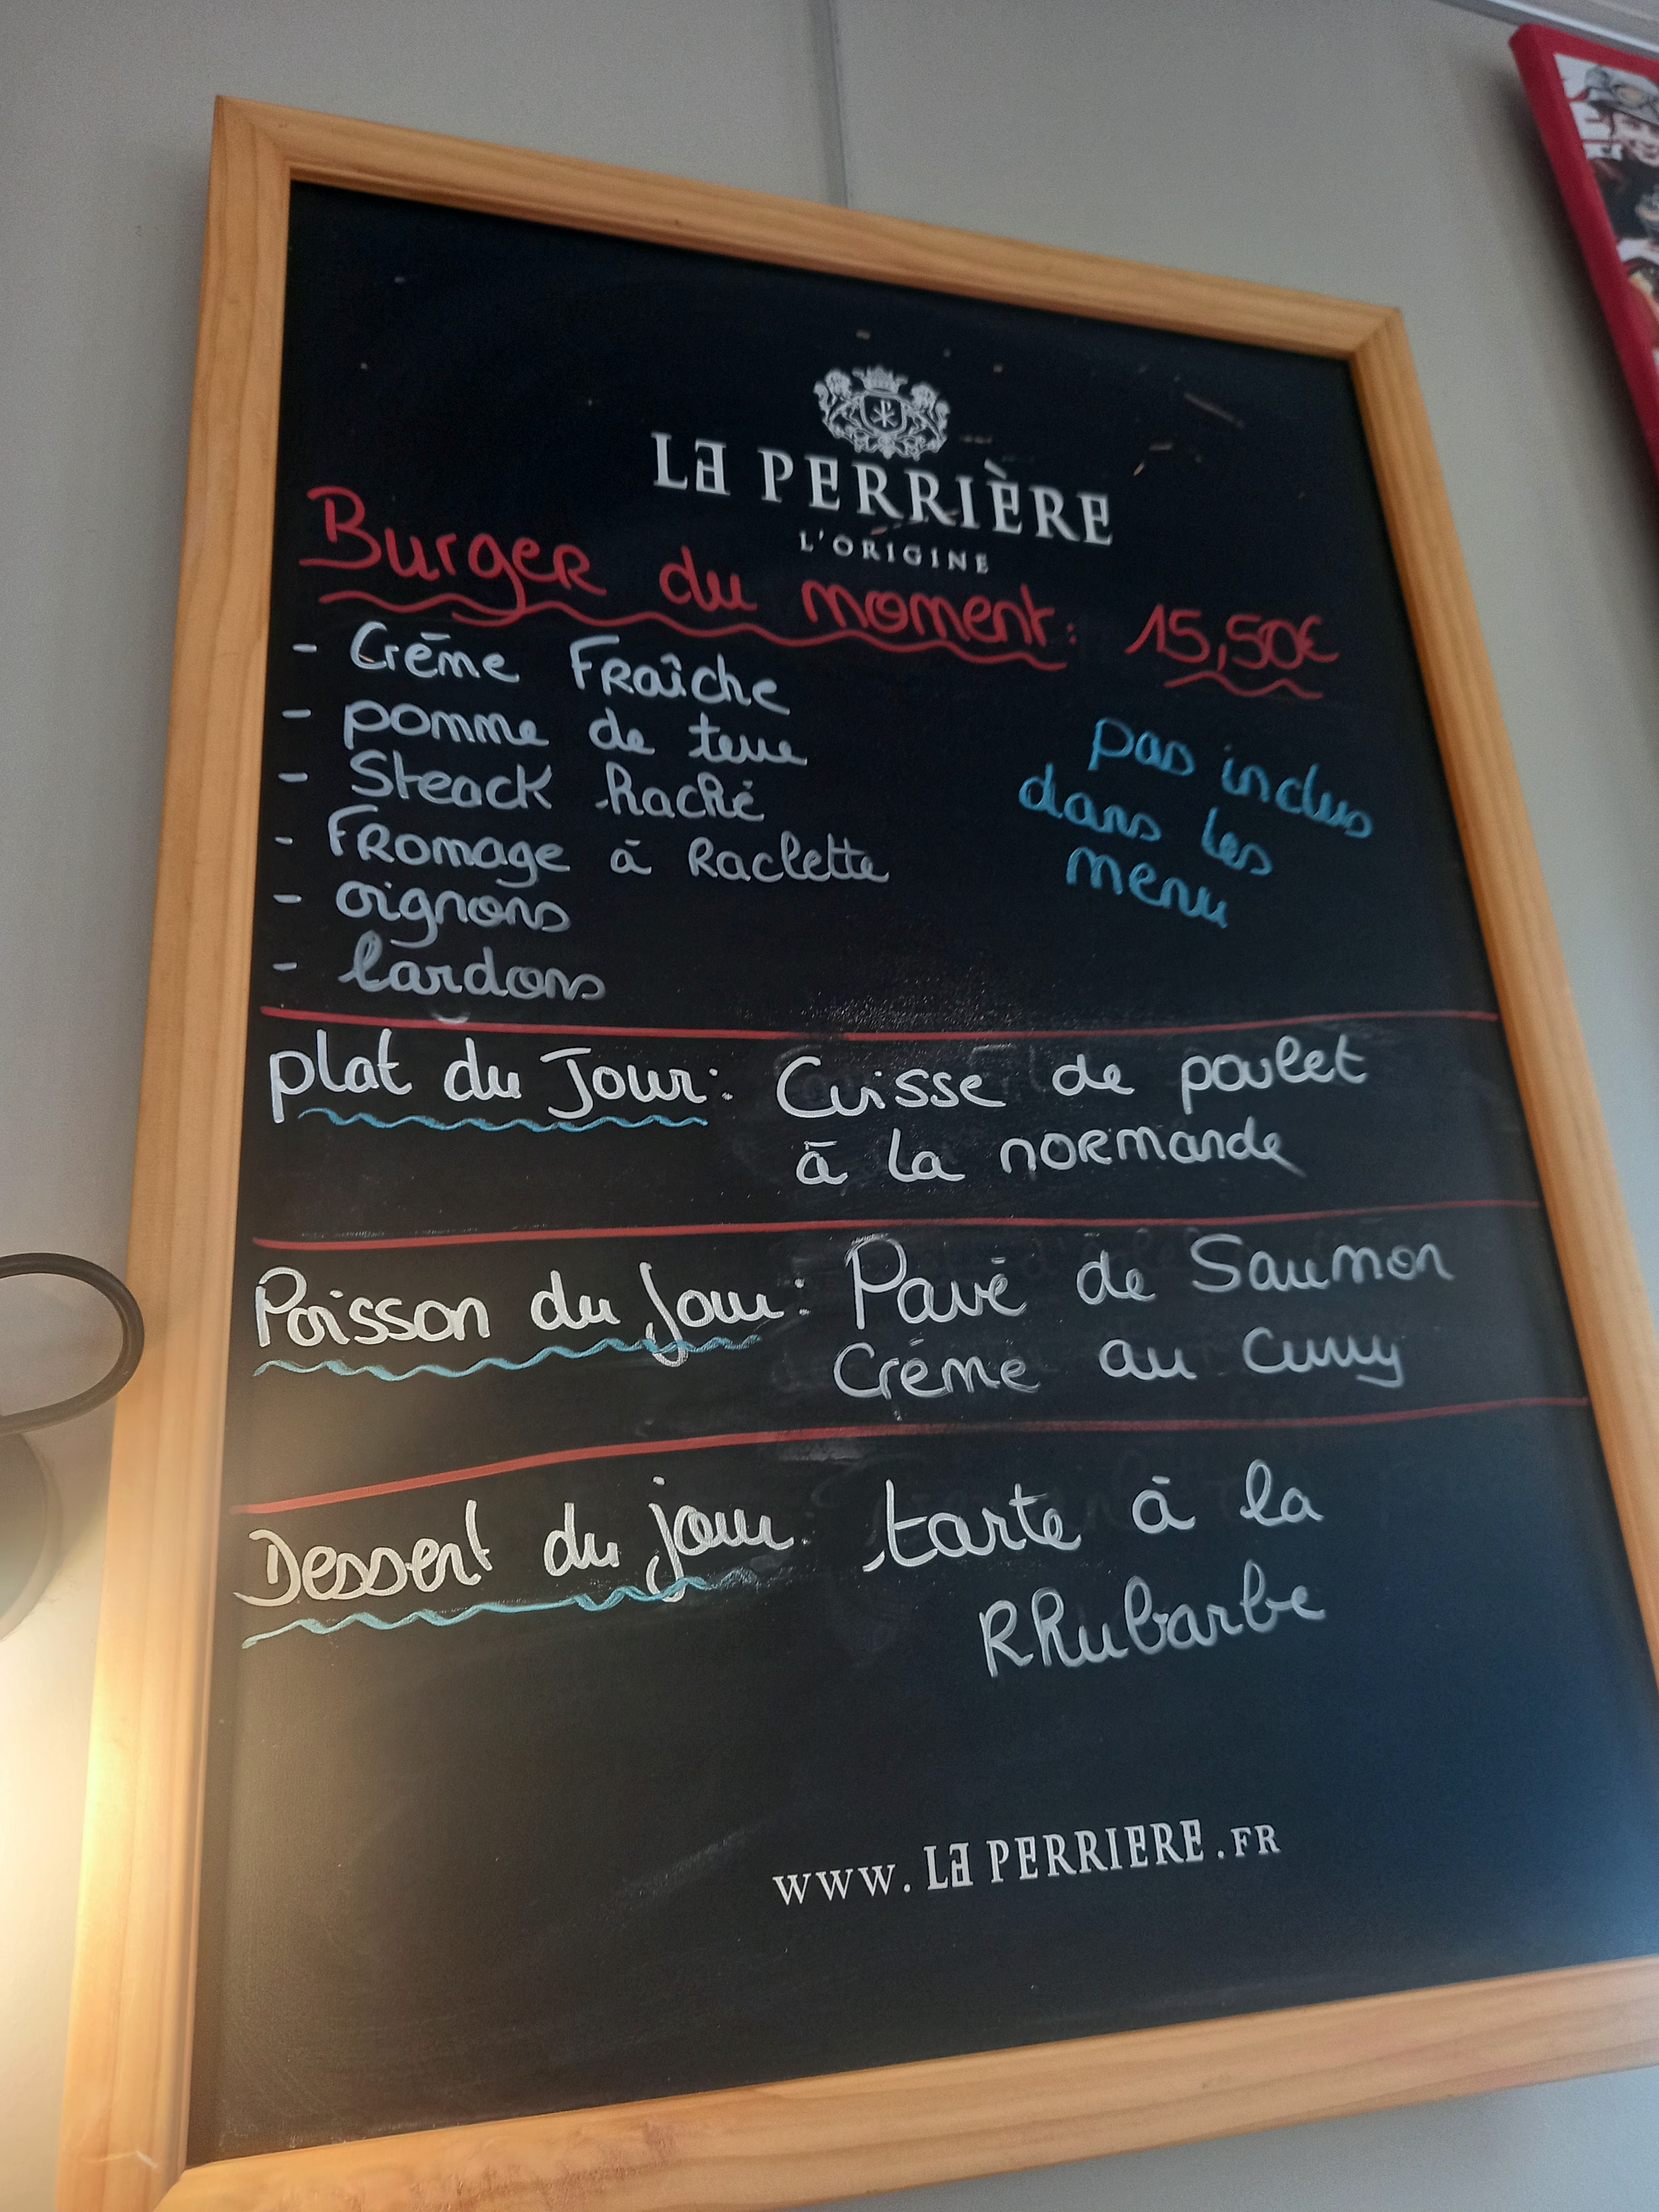 LA PERRIÈRE
L'ORIGINE
Burger du moment: 15,50€
- Crème Fraîche
- pomme de terre
- Steack haché
- Fromage à Raclette
- oignons
- lardons
pas inclus
dans les
menu
plat du Jour: Cuisse de poulet
à la normande
Poisson du Jour: Pavé de Saumon
Crème au Curry
Dessert du jour. tarte à la
Rhubarbe
WWW.LA PERRIERE.FR